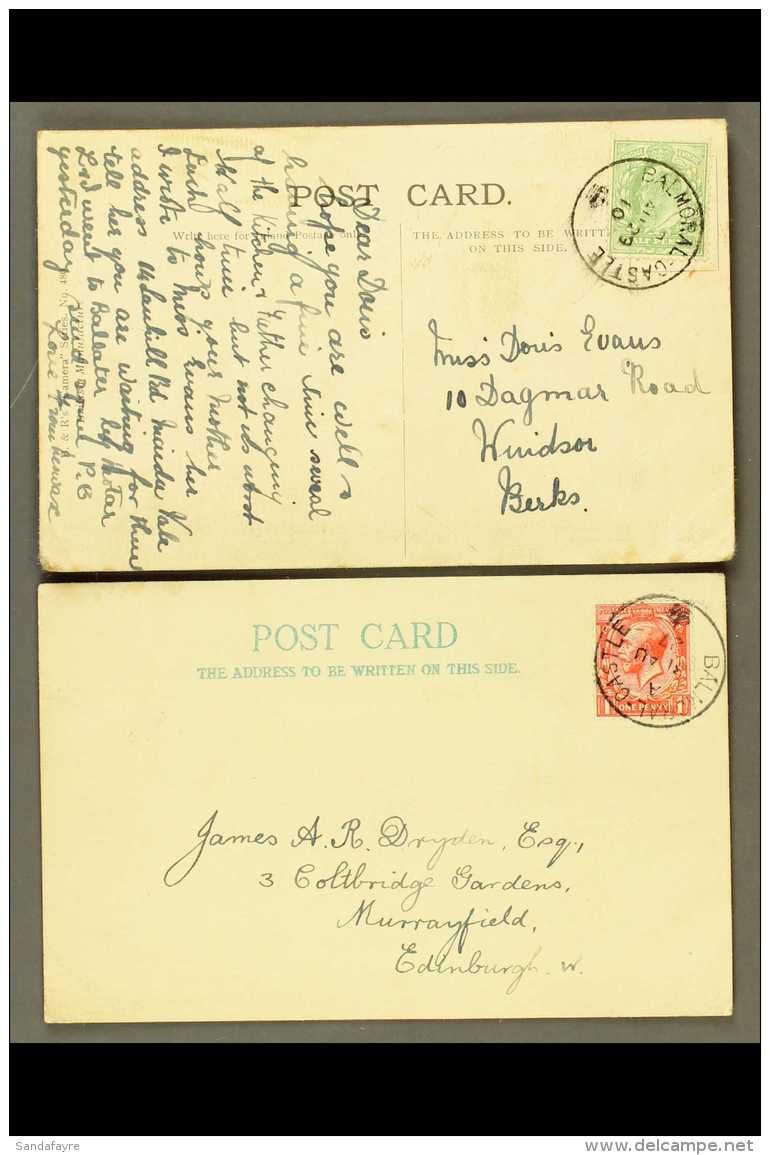 POST CARD.
Write here for Inland Postage only
THE ADDRESS TO BE WRITTEN
ON THIS SIDE.
BALMORAL·CASTLE
AU 29
10
Dear Doris
hope you are well &
having a fine time seveal
of the Kitchen
Half time but not its worst
your Mother
I wrote to Miss Evans her
address Maida Vale
tell her you are waiting for there
L & I went to Ballater by Motar
yesterday
P.B
Love from
Miss Doris Evans
10 Dagmar Road
Windsor
Berks.
POST CARD
THE ADDRESS TO BE WRITTEN ON THIS SIDE.
BALMORAL·CASTLE
AU
ONE PENNY
James A. R. Dryden, Esq.,
3 Coltbridge Gardens,
Murrayfield,
Edinburgh. W.
Sandafayre
delcampe.net